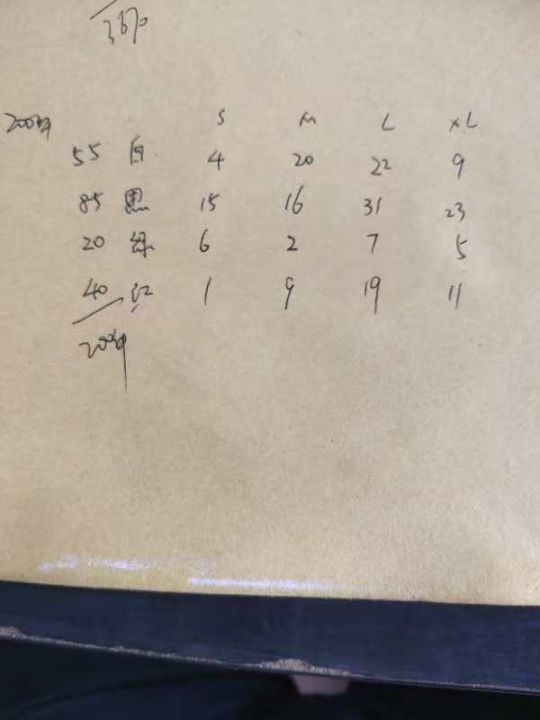 3670
200
S M L XL
55 白 4 20 22 9
85 黑 15 16 31 23
20 绿 6 2 7 5
40 红 1 9 19 11
200